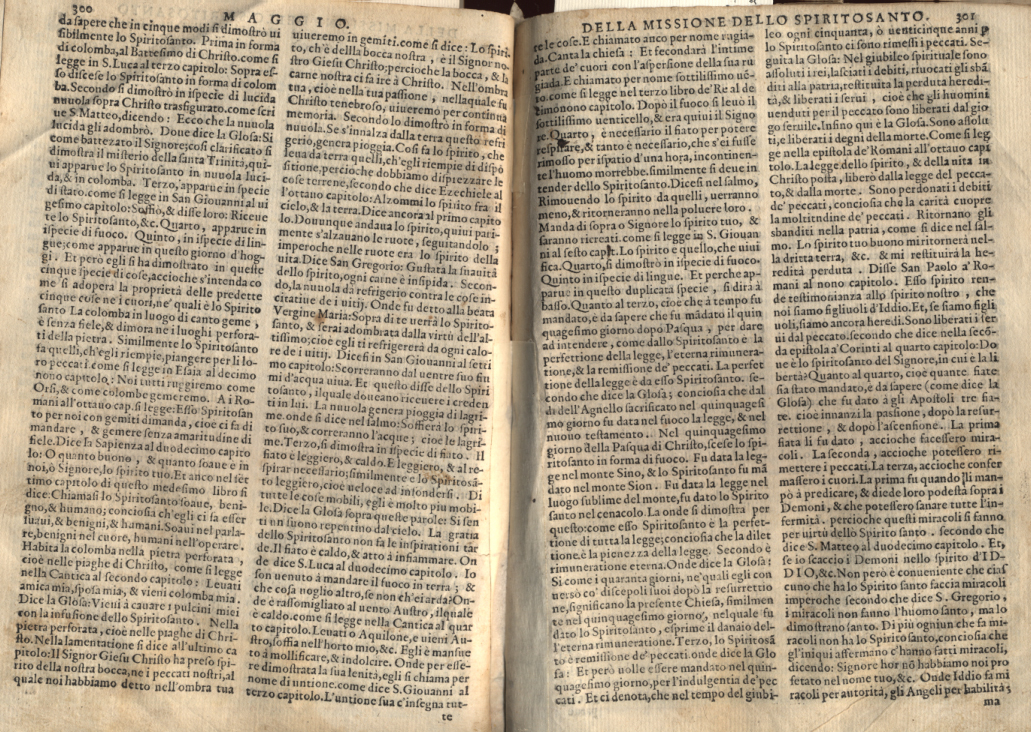 300
MAGGIO.
da sapere che in cinque modi si dimostrò ui
sibilmente lo Spiritosanto. Prima in forma
di colomba, al Battesimo di Christo. come si
legge in S. Luca al terzo capitolo: Sopra es-
so discese lo Spiritosanto in forma di colom
ba. Secondo si dimostrò in ispecie di lucida
nuuola sopra Christo trasfigurato. come scri
ue S. Matteo, dicendo: Ecco che la nuuola
lucida gli adombrò. Doue dice la Glosa: Si
come battezato il Signore; così clarificato si
dimostra il misterio della santa Trinità, qui-
ui apparue lo Spiritosanto in nuuola luci-
da, & in colomba. Terzo, apparue in specie
di fiato. come si legge in San Giouanni al ui
gesimo capitolo: Soffiò, & disse loro: Riceue
te lo Spiritosanto, &c. Quarto, apparue in
ispecie di fuoco. Quinto, in ispecie di lin-
gue; come apparue in questo giorno d'hog-
gi. Et però egli si ha dimostrato in queste
cinque ispecie di cose, accioche s'intenda co
me si adopera la proprietà delle predette
cinque cose ne i cuori, ne' quali è lo Spirito
santo La colomba in luogo di canto geme,
è senza fiele, & dimora ne i luoghi perfora-
ti della pietra. Similmente lo Spiritosanto
fa quelli, ch'egli riempie, piangere per li lo-
ro peccati. come si legge in Esaia al decimo
nono capitolo: Noi tutti ruggiremo come
Orsi, & come colombe gemeremo. A i Ro-
mani all'ottauo cap. si legge: Esso Spiritosan
to per noi con gemiti dimanda, cioè ci fa di
mandare, & gemere senza amaritudine di
fiele. Dice la Sapienza al duodecimo capito
lo: O quanto buono, & quanto soaue e in
noi, ò Signore, lo spirito tuo. Et anco nel set
timo capitolo di questo medesimo libro si
dice: Chiamasi lo Spiritosanto soaue, beni-
gno, & humano; conciosia ch'egli ci fa esser
suaui, & benigni, & humani. Soaui nel parla-
re, benigni nel cuore, humani nell'operare.
Habita la colomba nella pietra perforata,
cioè nelle piaghe di Christo, come si legge
nella Cantica al secondo capitolo: Leuati
amica mia, sposa mia, & vieni colomba mia.
Dice la Glosa: Vieni à cauare i pulcini miei
con la infusione dello Spiritosanto. Nella
pietra perforata, cioè nelle piaghe di Chri-
sto. Nella lamentatione si dice all'ultimo ca
pitolo: Il Signor Giesu Christo ha preso spi-
rito della nostra bocca, ne i peccati nostri, al
quale noi habbiamo detto nell'ombra tua
uiueremo in gemiti. come si dice: Lo spiri-
to, ch'è della bocca nostra, è il Signor no-
stro Giesu Christo; percioche la bocca, & la
carne nostra ci fa ire à Christo. Nell'ombra
tua, cioè nella tua passione, nellaquale fu
Christo tenebroso, uiueremo per continua
memoria. Secondo lo dimostrò in forma di
nuuola. Se s'innalza dalla terra questo refri
gerio, genera pioggia. Così fa lo spirito, che
leua da terra quelli, ch'egli riempie, di dispò
sitione, percioche dobbiamo dispregzare le
cose terrene, secondo che dice Ezechiele al
l'ottauo capitolo: Alzommi lo spirito fra il
cielo, & la terra. Dice ancora al primo capito
lo. Douunque andaua lo spirito, quiui pari-
mente s'alzauano le ruote, seguitandolo;
imperoche nelle ruote era lo spirito della
uita. Dice San Gregorio: Gustata la suauità
dello spirito, ogni carne è insipida. Secon-
do, la nuuola da refrigerio contra le cose in-
citatiue de i uitij. Onde fu detto alla beata
Vergine Maria: Sopra di te uerrà lo Spirito-
santo, & serai adombrata dalla virtù dell'al-
tissimo; cioè egli ti refrigererà da ogni calo-
re de i uitij. Dicesi in San Giouanni al setti
mo capitolo: Scorreranno dal uentre suo fiu
mi d'acqua uiua. Et questo disse dello Spiri
tosanto, ilquale doueano riceuere i creden
ti in lui. La nuuola genera pioggia di lagri-
me. onde si dice nel salmo: Soffierà lo spiri-
to suo, & correranno l'acque; cioè le lagri-
me. Terzo, si dimostra in ispecie di fiato. Il
fiato è leggiero, & caldo. E leggiero, & al re-
spirar necessario; similmente lo Spiritosan-
to leggiero, cioè ueloce ad infondersi. Di
tutte le cose mobili, egli è molto piu mobi-
le. Dice la Glosa sopra quelle parole: Si sen
tì un suono repentino dal cielo. La gratia
dello Spiritosanto non sa le inspirationi tar
de. Il fiato è caldo, & atto à infiammare. On
de dice S. Luca al duodecimo capitolo. Io
son uenuto à mandare il fuoco in terra; &
che cosa uoglio altro, se non ch'ei arda? On-
de è rassomigliato al uento Austro, ilquale
è caldo. come si legge nella Cantica al quar
to capitolo. Leuati o Aquilone, e uieni Au-
stro, soffia nell'horto mio, &c. Egli è mansue
to à mollificare, & indolcire. Onde per esse-
re dimostrata la sua lenità, egli si chiama per
nome di untione. come dice S. Giouanni al
terzo capitolo. L'untione sua c'insegna tut-
te
DELLA MISSIONE DELLO SPIRITOSANTO. 301
te le cose. E chiamato anco per nome rugia-
da. Canta la chiesa: Et fecondarà l'intime
parte de' cuori con l'aspersione della sua ru
giada. E chiamato per nome sottilissimo uē-
to. come si legge nel terzo libro de' Re al de
cimonono capitolo. Dopò il fuoco si leuò il
sottilissimo uenticello, & era quiui il Signo
re. Quarto, è necessario il fiato per potere
respirare, & tanto è necessario, che s'ei fusse
rimosso per ispatio d'una hora, incontinen-
te l'huomo morrebbe. similmente si deue in
tender dello Spiritosanto. Dicesi nel salmo,
Rimouendo lo spirito da quelli, uerranno
meno, & ritorneranno nella poluere loro.
Manda di sopra o Signore lo spirito tuo, &
saranno ricreati. come si legge in S. Giouan
ni al sesto capit. Lo spirito è quello, che uiui
fica. Quarto, si dimostrò in ispecie di fuoco.
Quinto in ispecie di lingue. Et perche ap-
parue in questo duplicata specie, si dirà à
basso. Quanto al terzo, cioè che à tempo fu
mandato, è da sapere che fu mādato il quin
quagesimo giorno dopò Pasqua, per dare
ad intendere, come dallo Spiritosanto è la
perfettione della legge, l'eterna rimunera-
tione, & la remissione de' peccati. La perfet
tione della legge è da esso Spiritosanto. se-
condo che dice la Glosa; conciosia che dal
dì dell'Agnello sacrificato nel quinquagesi
mo giorno fu data nel fuoco la legge, & nel
nuouo testamento. Nel quinquagesimo
giorno della Pasqua di Christo, scese lo spi-
ritosanto in forma di fuoco. Fu data la leg-
ge nel monte Sino, & lo Spiritosanto fu mā
dato nel monte Sion. Fu data la legge nel
luogo sublime del monte, fu dato lo Spirito
santo nel cenacolo. La onde si dimostra per
questo: come esso Spiritosanto è la perfet-
tione di tutta la legge; conciosia che la dilet
tione. è la pienezza della legge. Secondo è
rimuneratione eterna. Onde dice la Glosa:
Si come i quaranta giorni, ne' quali egli con
uersò co' discepoli suoi dopò la resurrettio
ne, significano la presente Chiesa, similmen
te nel quinquagesimo giorno, nelque fu
dato lo Spiritosanto, esprime il danaio del-
l'eterna rimuneratione. Terzo, lo Spiritosā
to è remissione de' peccati. onde dice la Glo
sa: Et però uolle essere mandato nel quin-
quagesimo giorno, per l'indulgentia de' pec
cati. Et ci denota, che nel tempo del giubi-
leo ogni cinquanta, ò uenticinque anni p
lo Spiritosanto ci sono rimessi i peccati. Se-
guita la Glosa: Nel giubileo spirituale sono
assoluti i rei, lasciati i debiti, riuocati gli sbā
diti alla patria, restituita la perduta heredi-
tà, & liberati i serui, cioè che gli huomini
uenduti per il peccato sono liberati dal gio
go seruile. Infino qui è la Glosa. Sono assolu
ti, e liberati i degni della morte. Come si leg
ge nella epistola de' Romani all'ottauo capi
tolo. La legge dello spirito, & della uita in
Christo posta, liberò dalla legge del pecca-
to, & dalla morte. Sono perdonati i debiti
de' peccati, conciosia che la carità cuopre
la moltitudine de' peccati. Ritornano gli
sbanditi nella patria, come si dice nel sal-
mo. Lo spirito tuo buono mi ritornerà nel-
la dritta terra, &c. & mi restituirà la he-
redità perduta. Disse San Paolo a' Ro-
mani al nono capitolo. Esso spirito ren-
de testimonianza allo spirito nostro, che
noi siamo figliuoli d'Iddio. Et, se siamo figli
uoli, siamo ancora heredi. Sono liberati i ser
ui dal peccato. secondo che dice nella secō-
da epistola a' Corinti al quarto capitolo: Do
ue è lo spiritosanto del Signore, in cui è la li
bertà? Quanto al quarto, cioè quante fiate
sia stato mandato, è da sapere (come dice la
Glosa) che fu dato à gli Apostoli tre fia-
te. cioè innanzi la passione, dopò la resur-
rettione, & dopò l'ascensione. La prima
fiata li fu dato, accioche facessero mira-
coli. La seconda, accioche potessero ri-
mettere i peccati. La terza, accioche confer
massero i cuori. La prima fu quando li man-
dò à predicare, & diede loro podestà sopra i
Demoni, & che potessero sanare tutte l'in-
fermità. percioche questi miracoli si fanno
per uirtù dello Spirito santo. secondo che
dice S. Matteo al duodecimo capitolo. Et,
se io scaccio i Demoni nello spirito d'ID-
DIO, &c. Non però è conueniente che cias
cuno che ha lo Spirito santo faccia miracoli
imperoche secondo che dice S. Gregorio,
i miracoli non fanno l'huomo santo, ma lo
dimostrano santo. Di più ogniun che fa mi-
racoli non ha lo Spiritosanto, conciosia che
gl'iniqui affermano c'hanno fatti miracoli,
dicendo: Signore hor nō habbiamo noi pro
fetato nel nome tuo, &c. Onde Iddio fa mi
racoli per autorità, gli Angeli per habilità;
ma